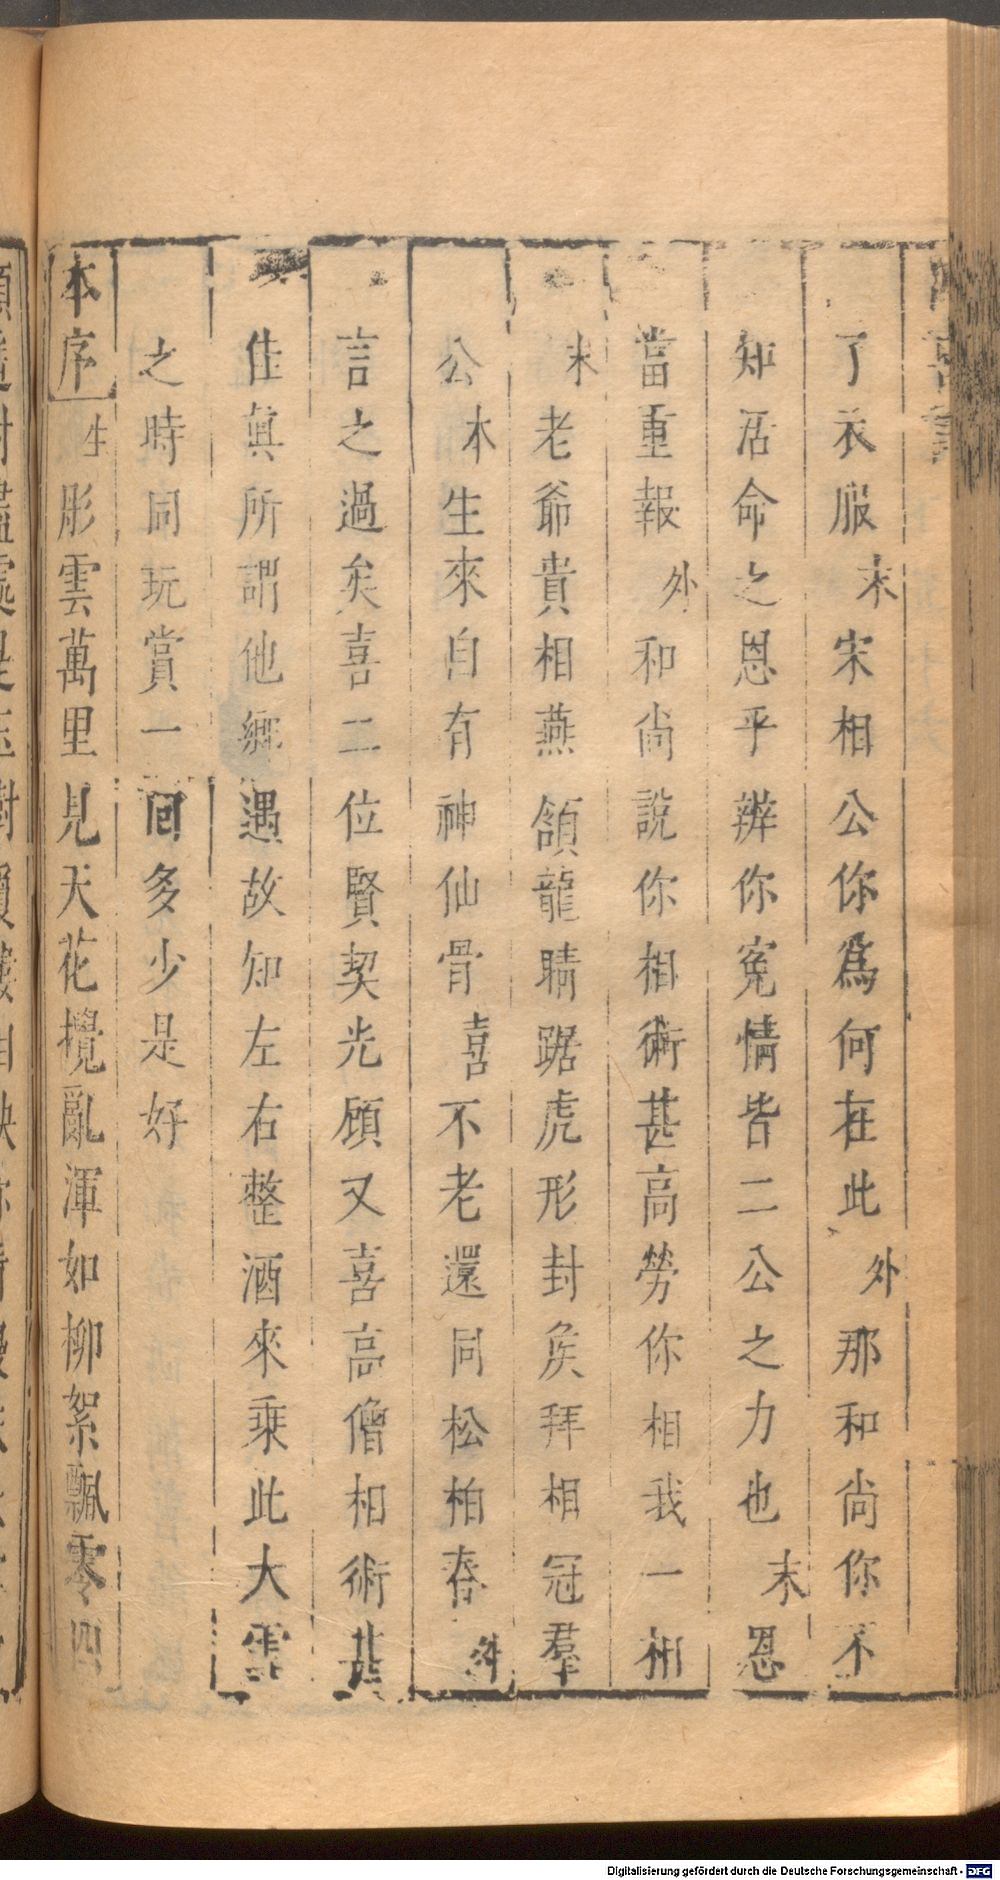 了衣服末宋相公你爲何在此外那和尚你不
知活命之恩乎辨你冤情皆二公之力也末恩
當重報外和尚說你相術甚高勞你相我一相
末老爺貴相燕頷龍睛踞虎形封矦拜相冠羣
公本生來自有神仙骨喜不老還同松柏春外
言之過矣喜二位賢契光顧又喜高僧相術甚
佳眞所謂他鄉遇故知左右整酒來乘此大雪
之時同玩賞一回多少是好
本序生彤雲萬里見天花攪亂渾如柳絮飄零四
Digitalisierung gefördert durch die Deutsche Forschungsgemeinschaft - DFG